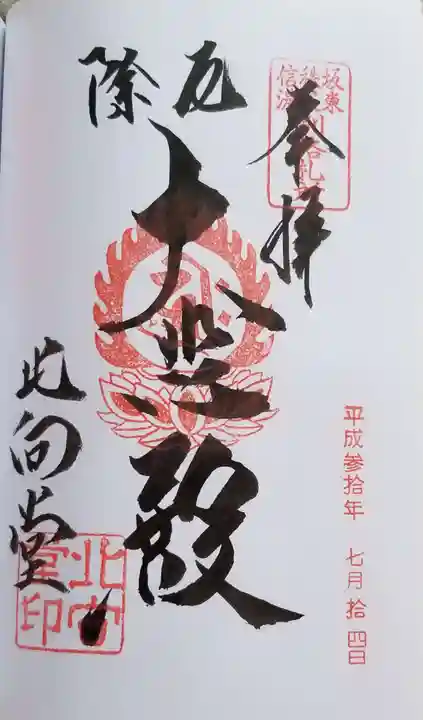 坂東
信濃
札所
奉拝
平成参拾年 七月拾四日
厄除
大悲殿
北向堂
北向堂印